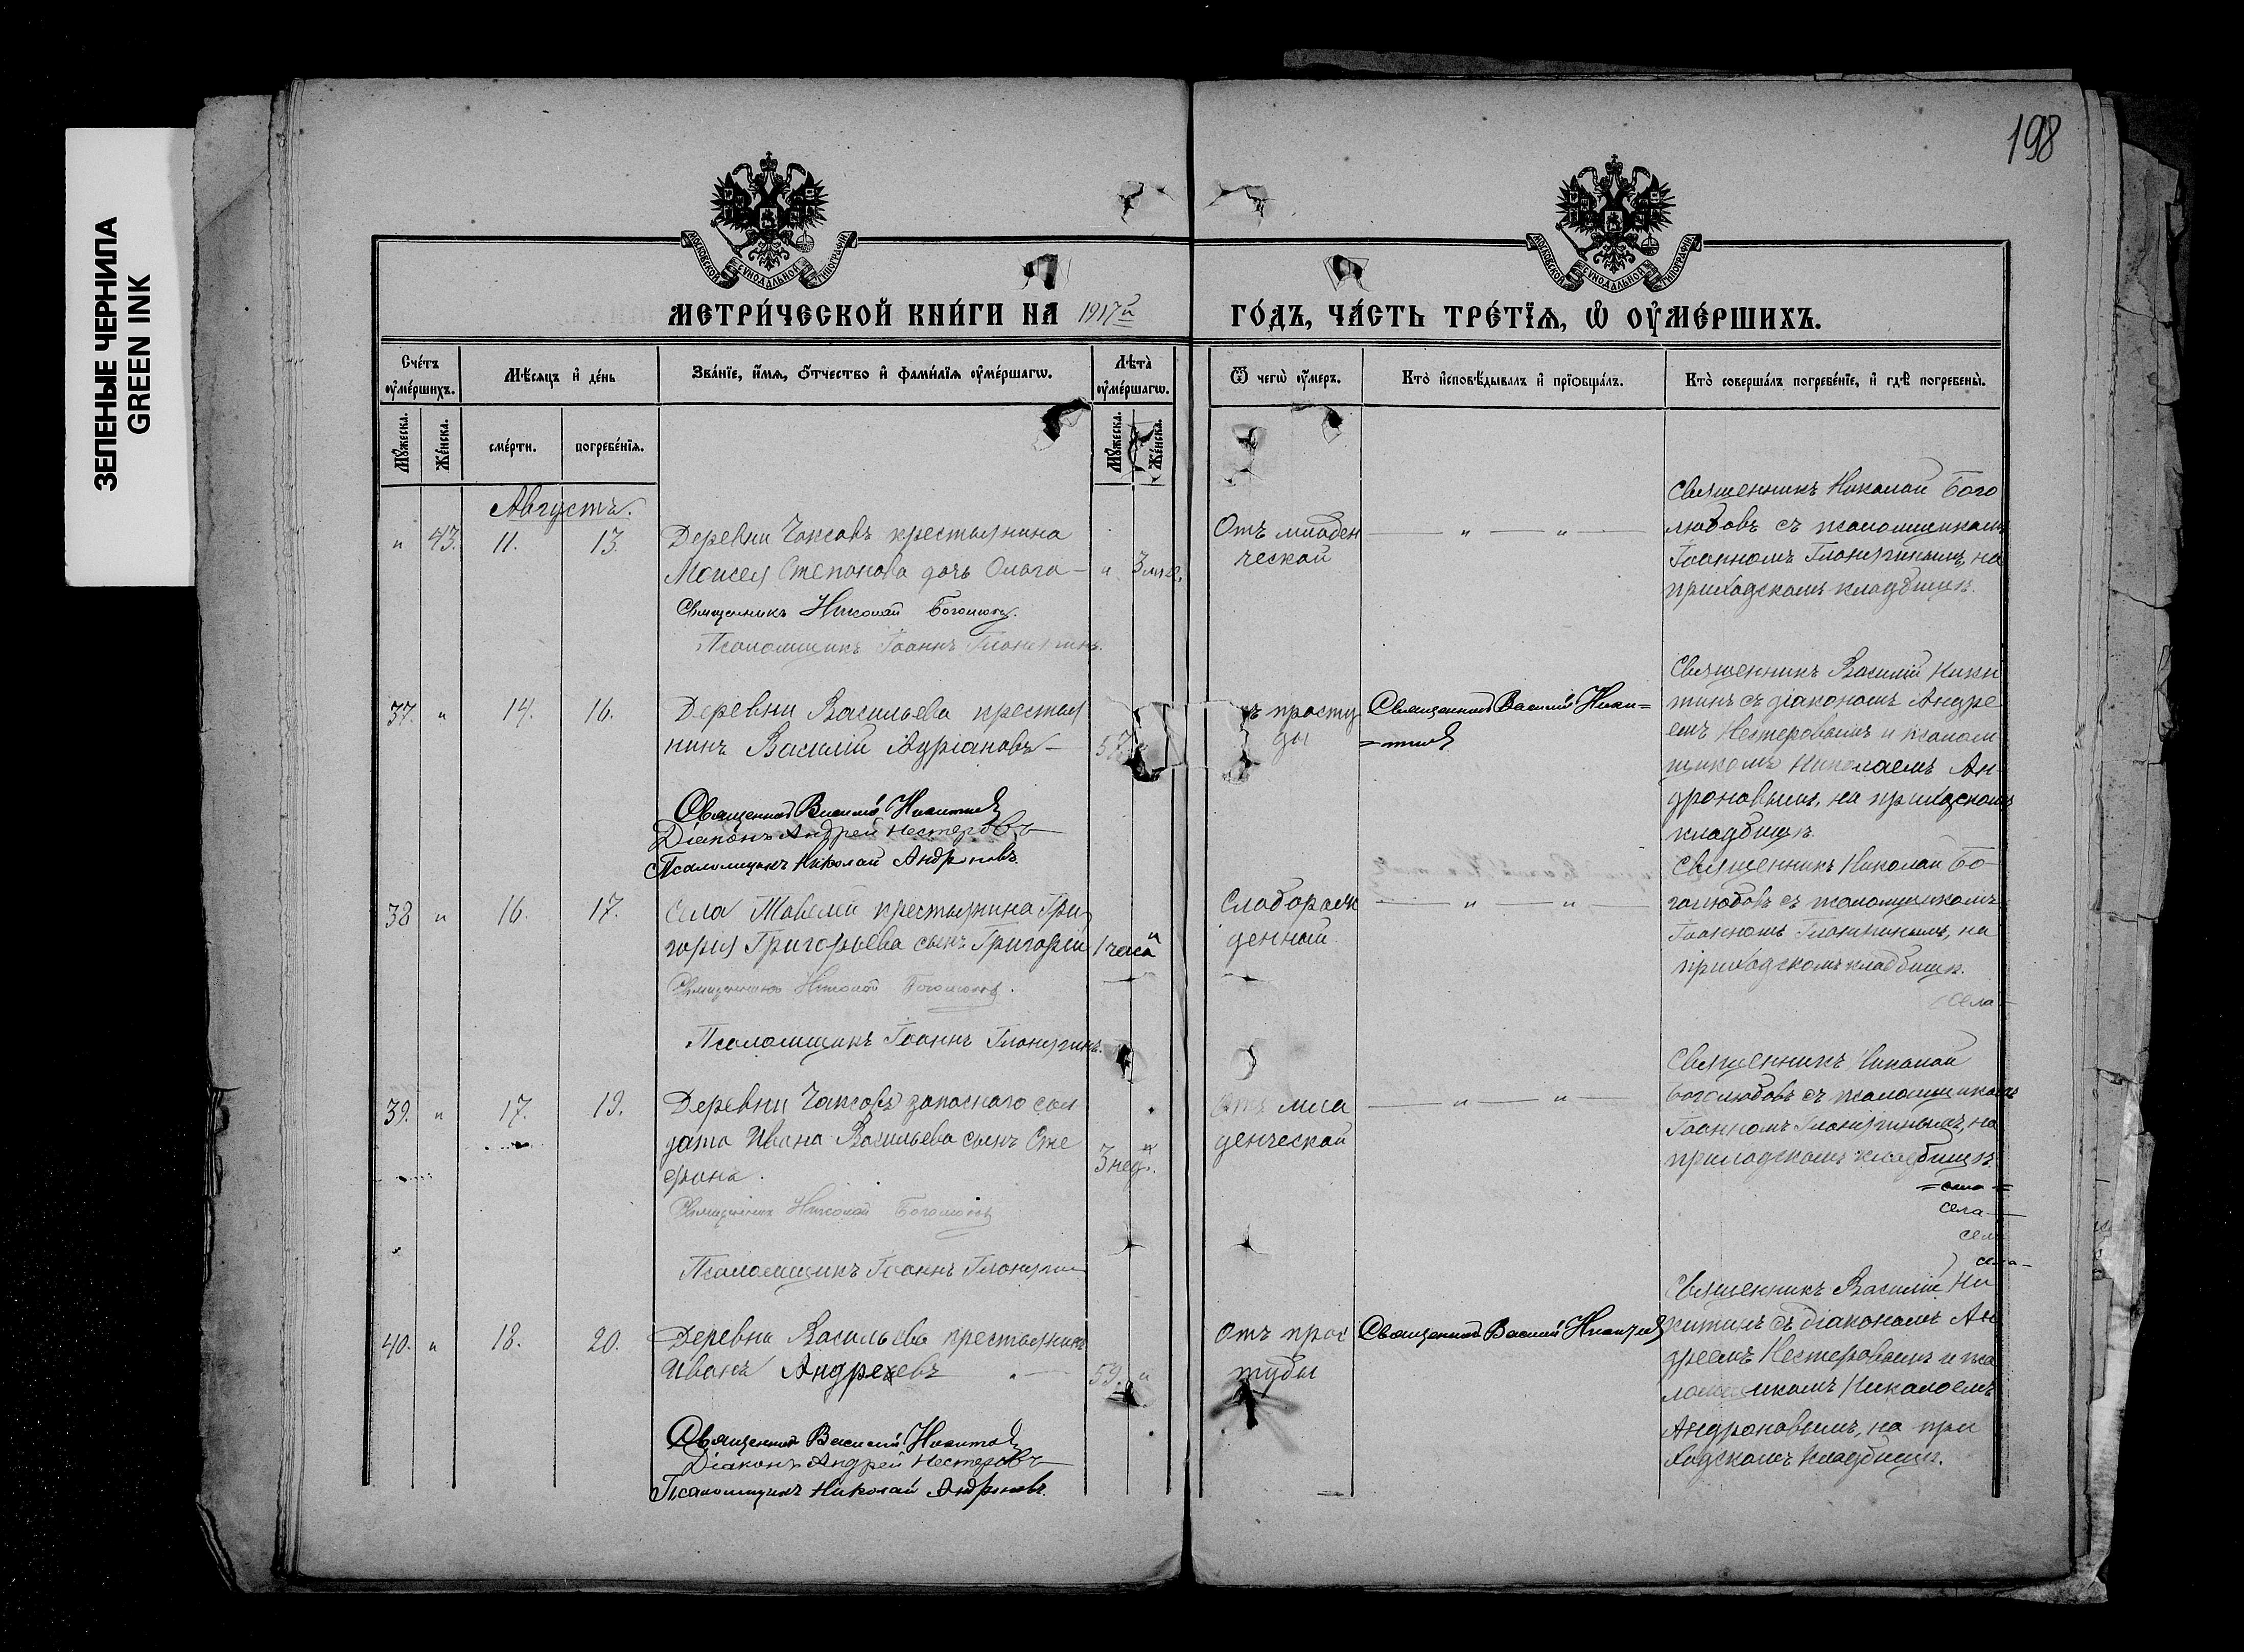 ЗЕЛЕНЫЕ ЧЕРНИЛА
GREEN INK
198
МОСКОВСКОЙ СѴНОДАЛЬНОЙ ТИПОГРАФІИ
МОСКОВСКОЙ СѴНОДАЛЬНОЙ ТИПОГРАФІИ
МЕТРИ́ЧЕСКОЙ КНИ́ГИ НА 1917й
ГО́ДЪ, ЧА́СТЬ ТРЕ́ТЇѦ, Ѽ ОУ҆МЕ́РШИХЪ.
Сче́тъ оу҆ме́ршихъ.
Мѣ́сяцъ и҆ де́нь
Зва́нїе, и҆́мѧ, ѻ҆́тчество и҆ фами́лїѧ оу҆ме́ршагѡ.
Лѣ́та оу҆ме́ршагѡ.
Ѿ чегѡ̀ оу҆́меръ.
Кто̀ и҆сповѣ́дывалъ и҆ прїѡбща́лъ.
Кто̀ соверша́лъ погребе́нїе, и҆ гдѣ̀ погребены̀.
Мꙋ́жеска.
Же́нска.
сме́рти.
погребе́нїѧ.
Мꙋ́жеска.
Же́нска.
Августъ.
" 43. 11. 13.
Деревни Чаксовъ крестьянина
Моисея Степанова дочь Ольга –
" 3
Священникъ Николай Боголюбов
Псаломщикъ Іоаннъ
Отъ младен
ческой
— " — " —
Священникъ Николай Бого
любовъ съ псаломщикомъ
Іоанномъ на
приходскомъ кладбищѣ.
37. " 14. 16.
Деревни Васильева крестья
нинъ Василій Адріановъ –
57
Священник Василій Никитинъ
Діаконъ Андрей Нестеровъ
Псаломщикъ Николай Андроновъ.
просту
ды
Священникъ Василій Ники=
=тинъ
Священникъ Василій Ники
тинъ съ діакономъ Андре
емъ Нестеровымъ и псалом
щикомъ Николаемъ Ан-
дроновымъ, на приходскомъ
кладбищѣ.
38 " 16. 17.
Села крестьянина Гри
горія Григорьева сынъ Григорій
1 часа "
Священникъ Николай Боголюбовъ.
Псаломщикъ Іоаннъ
Слаборож
денный
— " — " —
Священникъ Николай Бо-
голюбовъ съ псаломщикомъ
Іоанномъ на
приходскомъ кладбищѣ.
села
39. " 17. 19.
Деревни Чаксовъ запаснаго сол
дата Ивана Васильева сынъ Сте
фанъ.
3 нед. "
Священникъ Николай Боголюбовъ
Псаломщикъ Іоаннъ
Отъ мла
денческой
— " — " —
Священникъ Николай
Боголюбовъ съ псаломщикомъ
Іоанномъ на
приходскомъ кладбищѣ.
= села =
села
села
села
40. " 18. 20.
Деревни Васильева крестьянинъ
Иванъ Андреевъ
59. "
Священникъ Василій Никитинъ
Діаконъ Андрей Нестеровъ
Псаломщикъ Николай Андроновъ.
Отъ прос
туды
Священникъ Василій Никитинъ
Священникъ Василій Ни
китинъ съ діакономъ Ан
дреемъ Нестеровымъ и пса
ломщикомъ Николаемъ
Андроновымъ, на при
ходскомъ кладбищѣ.